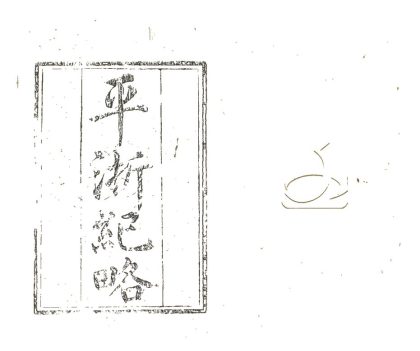 平浙紀略